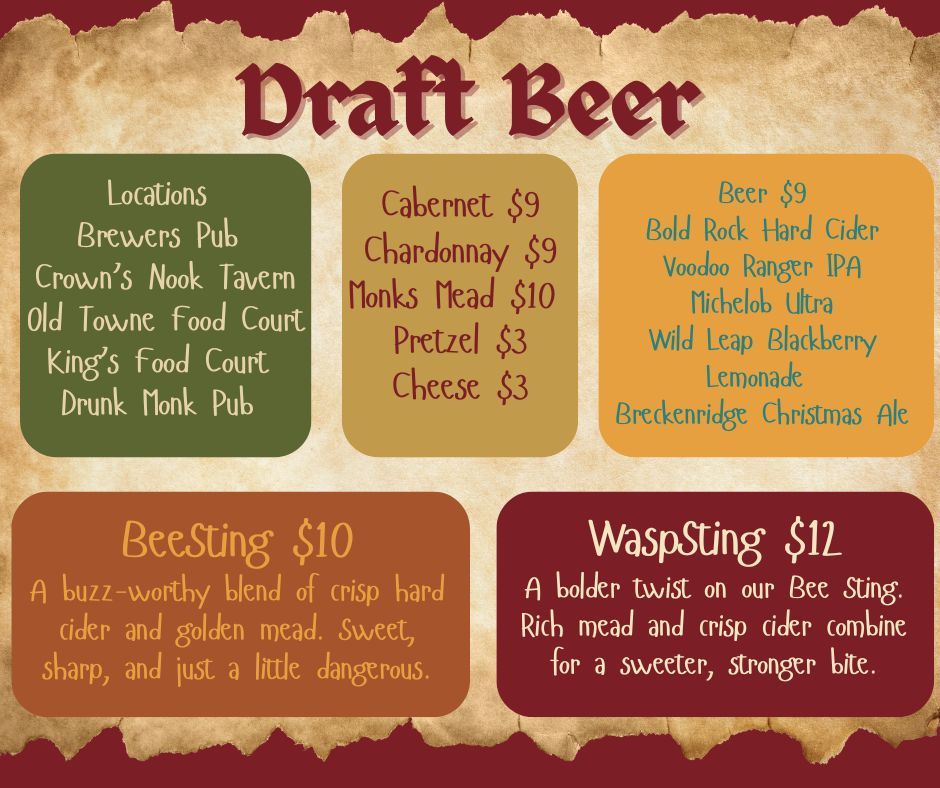 Draft Beer
Locations
Brewers Pub
Crown's Nook Tavern
Old Towne Food Court
King's Food Court
Drunk Monk Pub
Cabernet $9
Chardonnay $9
Monks Mead $10
Pretzel $3
Cheese $3
Beer $9
Bold Rock Hard Cider
Voodoo Ranger IPA
Michelob Ultra
Wild Leap Blackberry
Lemonade
Breckenridge Christmas Ale
BeeSting $10
A buzz-worthy blend of crisp hard
cider and golden mead. Sweet,
sharp, and just a little dangerous.
WaspSting $12
A bolder twist on our Bee Sting.
Rich mead and crisp cider combine
for a sweeter, stronger bite.